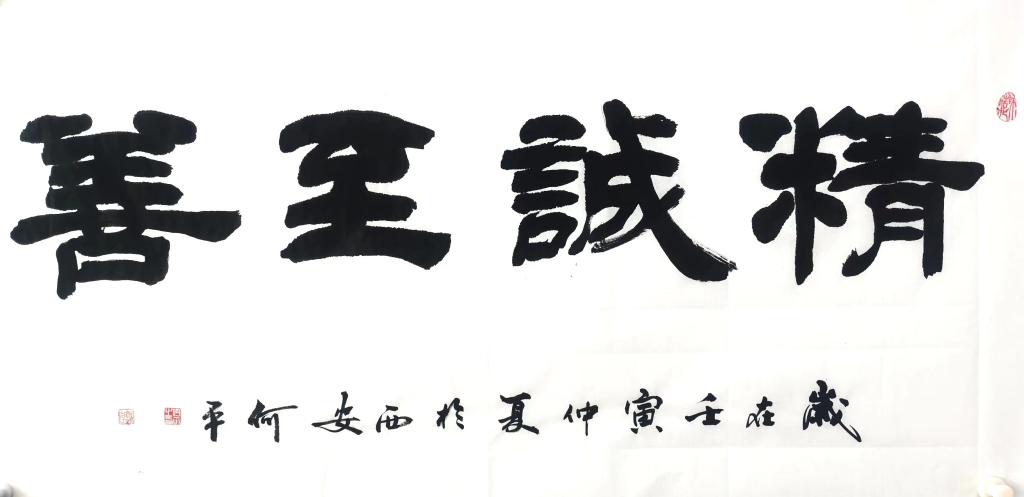 精誠至善
歲在壬寅仲夏於西安何平